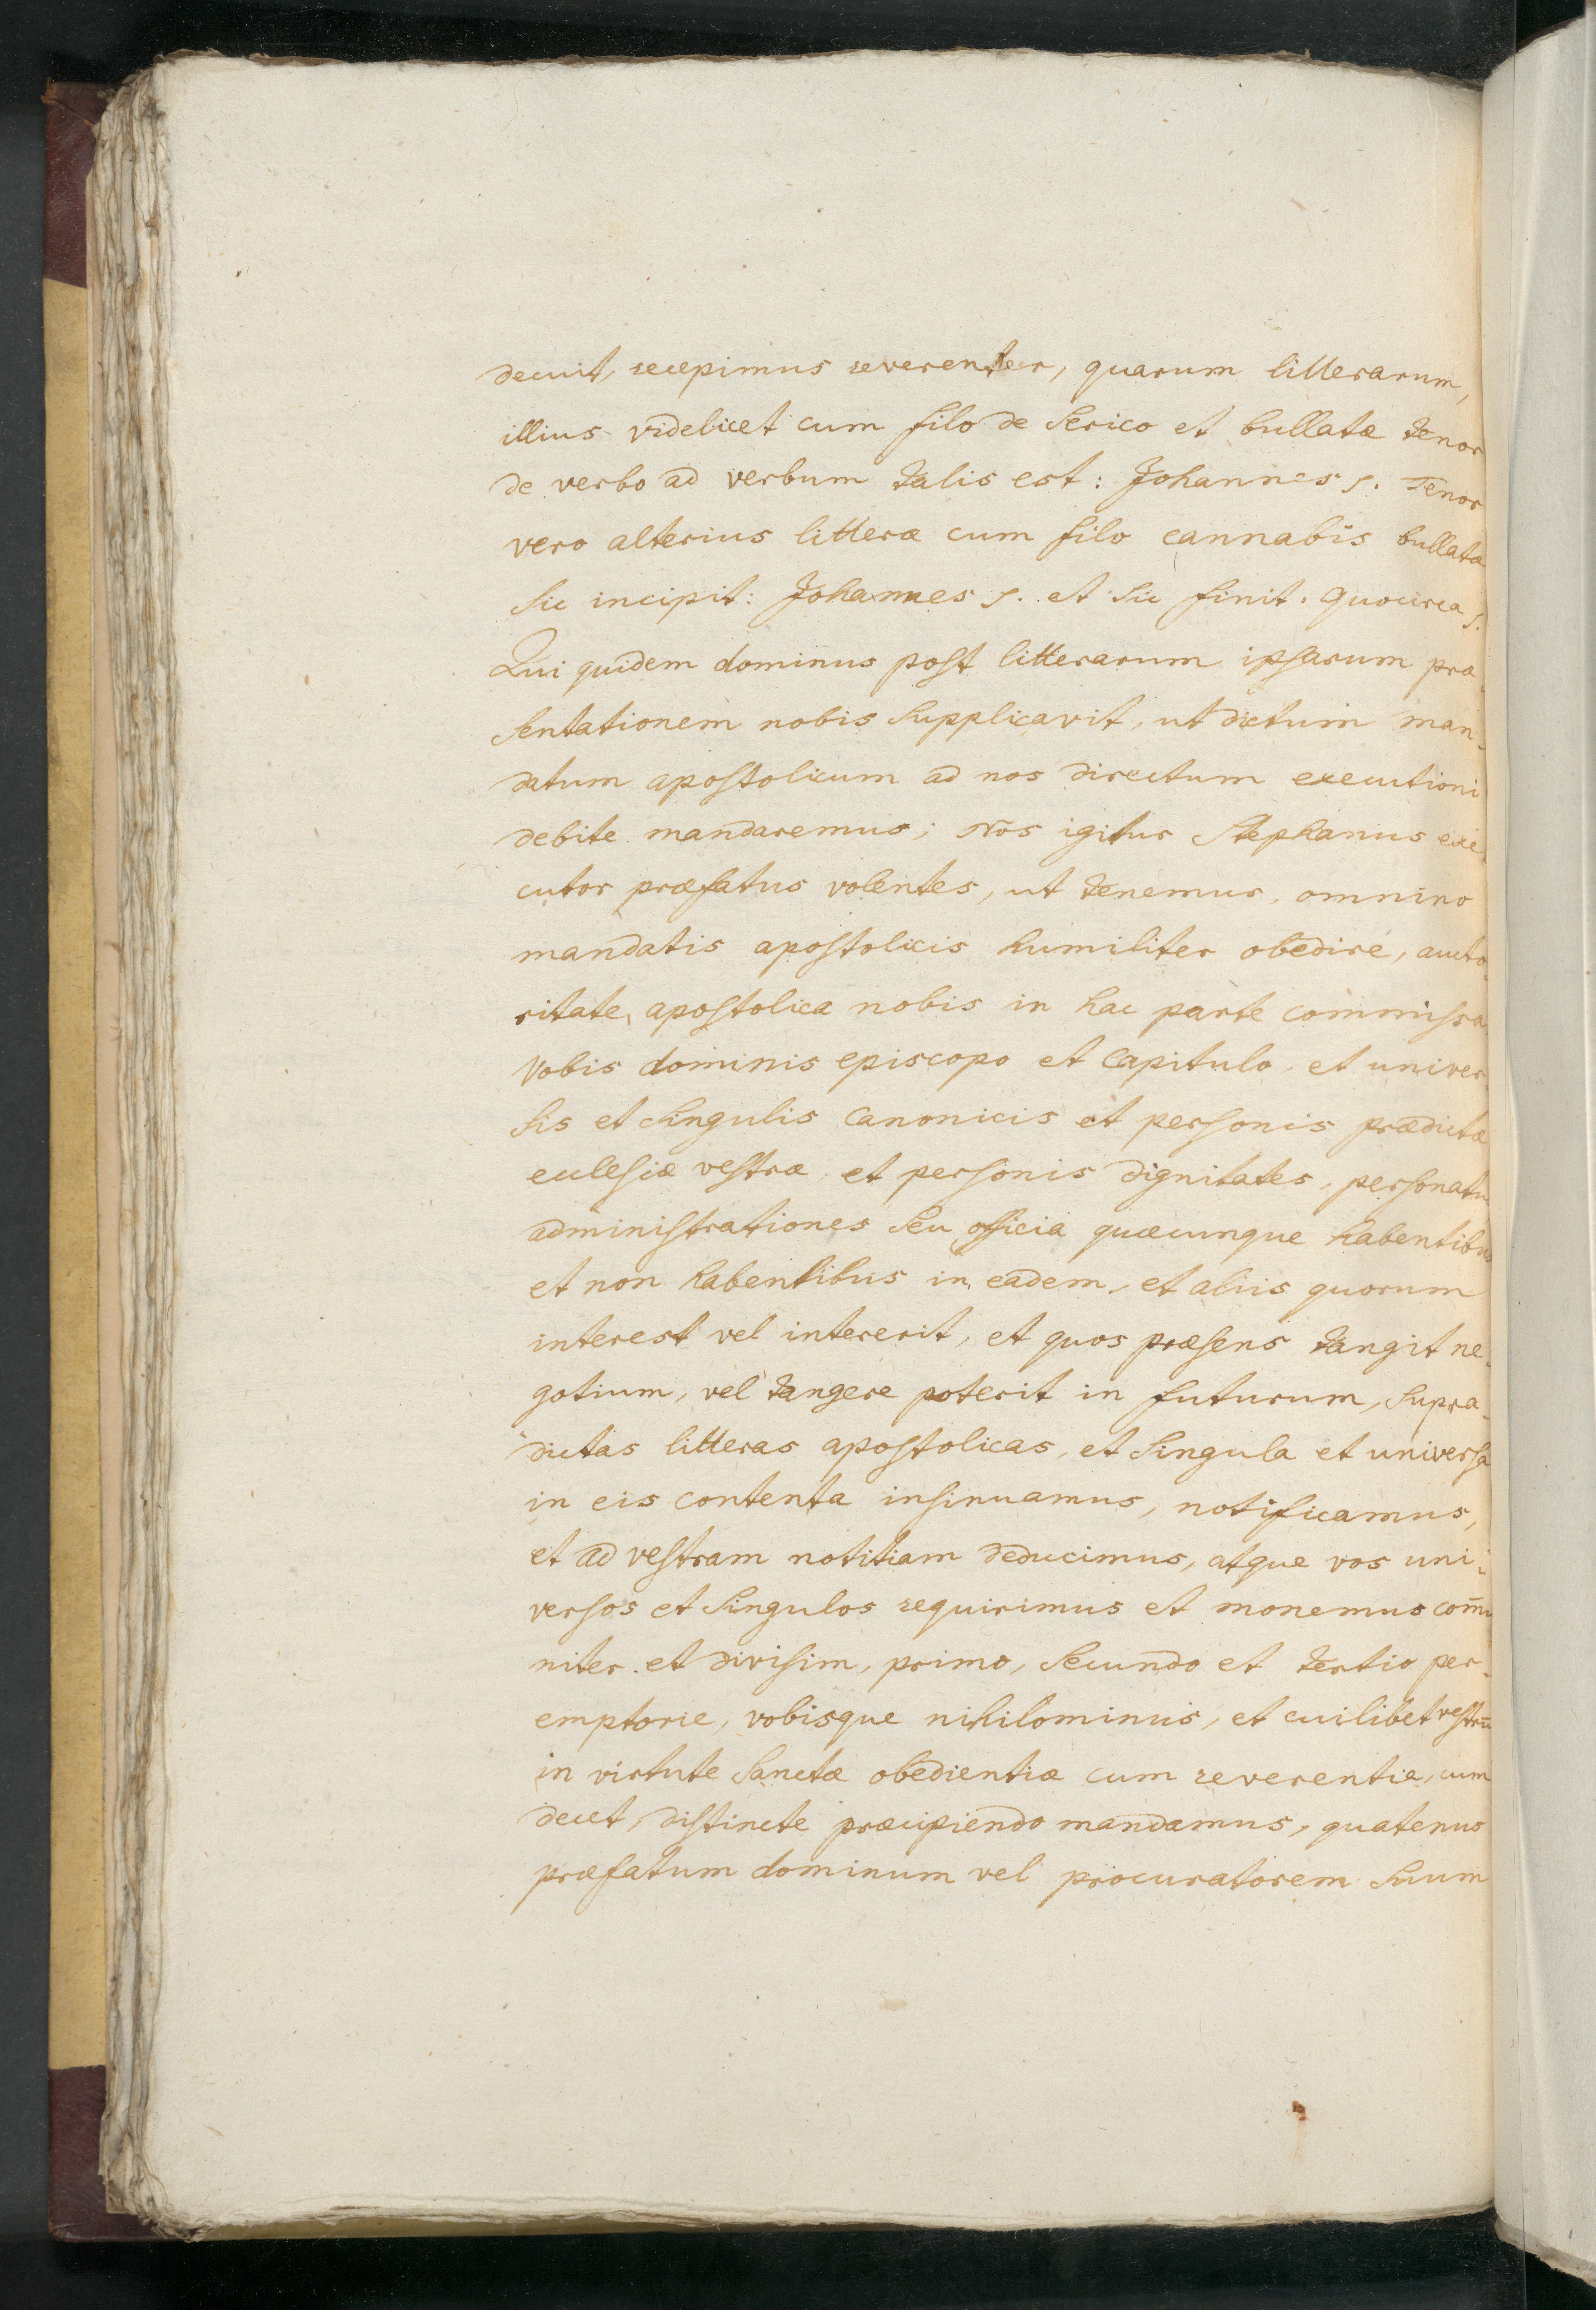 decuit, recepimus reverenter, quarum litterarum,
illius videlicet cum filo de serico et bullatæ tenor
de verbo ad verbum talis est: Johannes s. Tenor
vero alterius litteræ cum filo cannabis bullatæ
sic incipit: Johannes s. et sic finit. quocirca s.
Qui quidem dominus post litterarum ipsarum præ-
sentationem nobis supplicavit, ut dictum man-
datum apostolicum ad nos directum executioni
debite mandaremus; Nos igitur Stephanus exe-
cutor præfatus volentes, ut tenemur, omnino
mandatis apostolicis humiliter obedire, aucto-
ritate apostolica nobis in hac parte commissa
vobis dominis episcopo et capitulo et univer-
sis et singulis canonicis et personis prædictæ
ecclesiæ vestræ, et personis dignitates, personatu
administrationes seu officia quæcunque habentibus
et non habentibus in eadem, et aliis quorum
interest vel intererit, et quos præsens tangit ne-
gotium, vel tangere poterit in futurum, supra-
dictas litteras apostolicas, et singula et universa
in eis contenta insinuamus, notificamus,
et ad vestram notitiam deducimus, atque vos uni-
versos et singulos requirimus et monemus com̄u
niter et divisim, primo, secundo et tertio per-
emptorie, vobisque nihilominus, et cuilibet vestrū
in virtute sanctæ obedientiæ cum reverentia, cum
decet, distincte præcipiendo mandamus, quatenus
præfatum dominum vel procuratorem suum